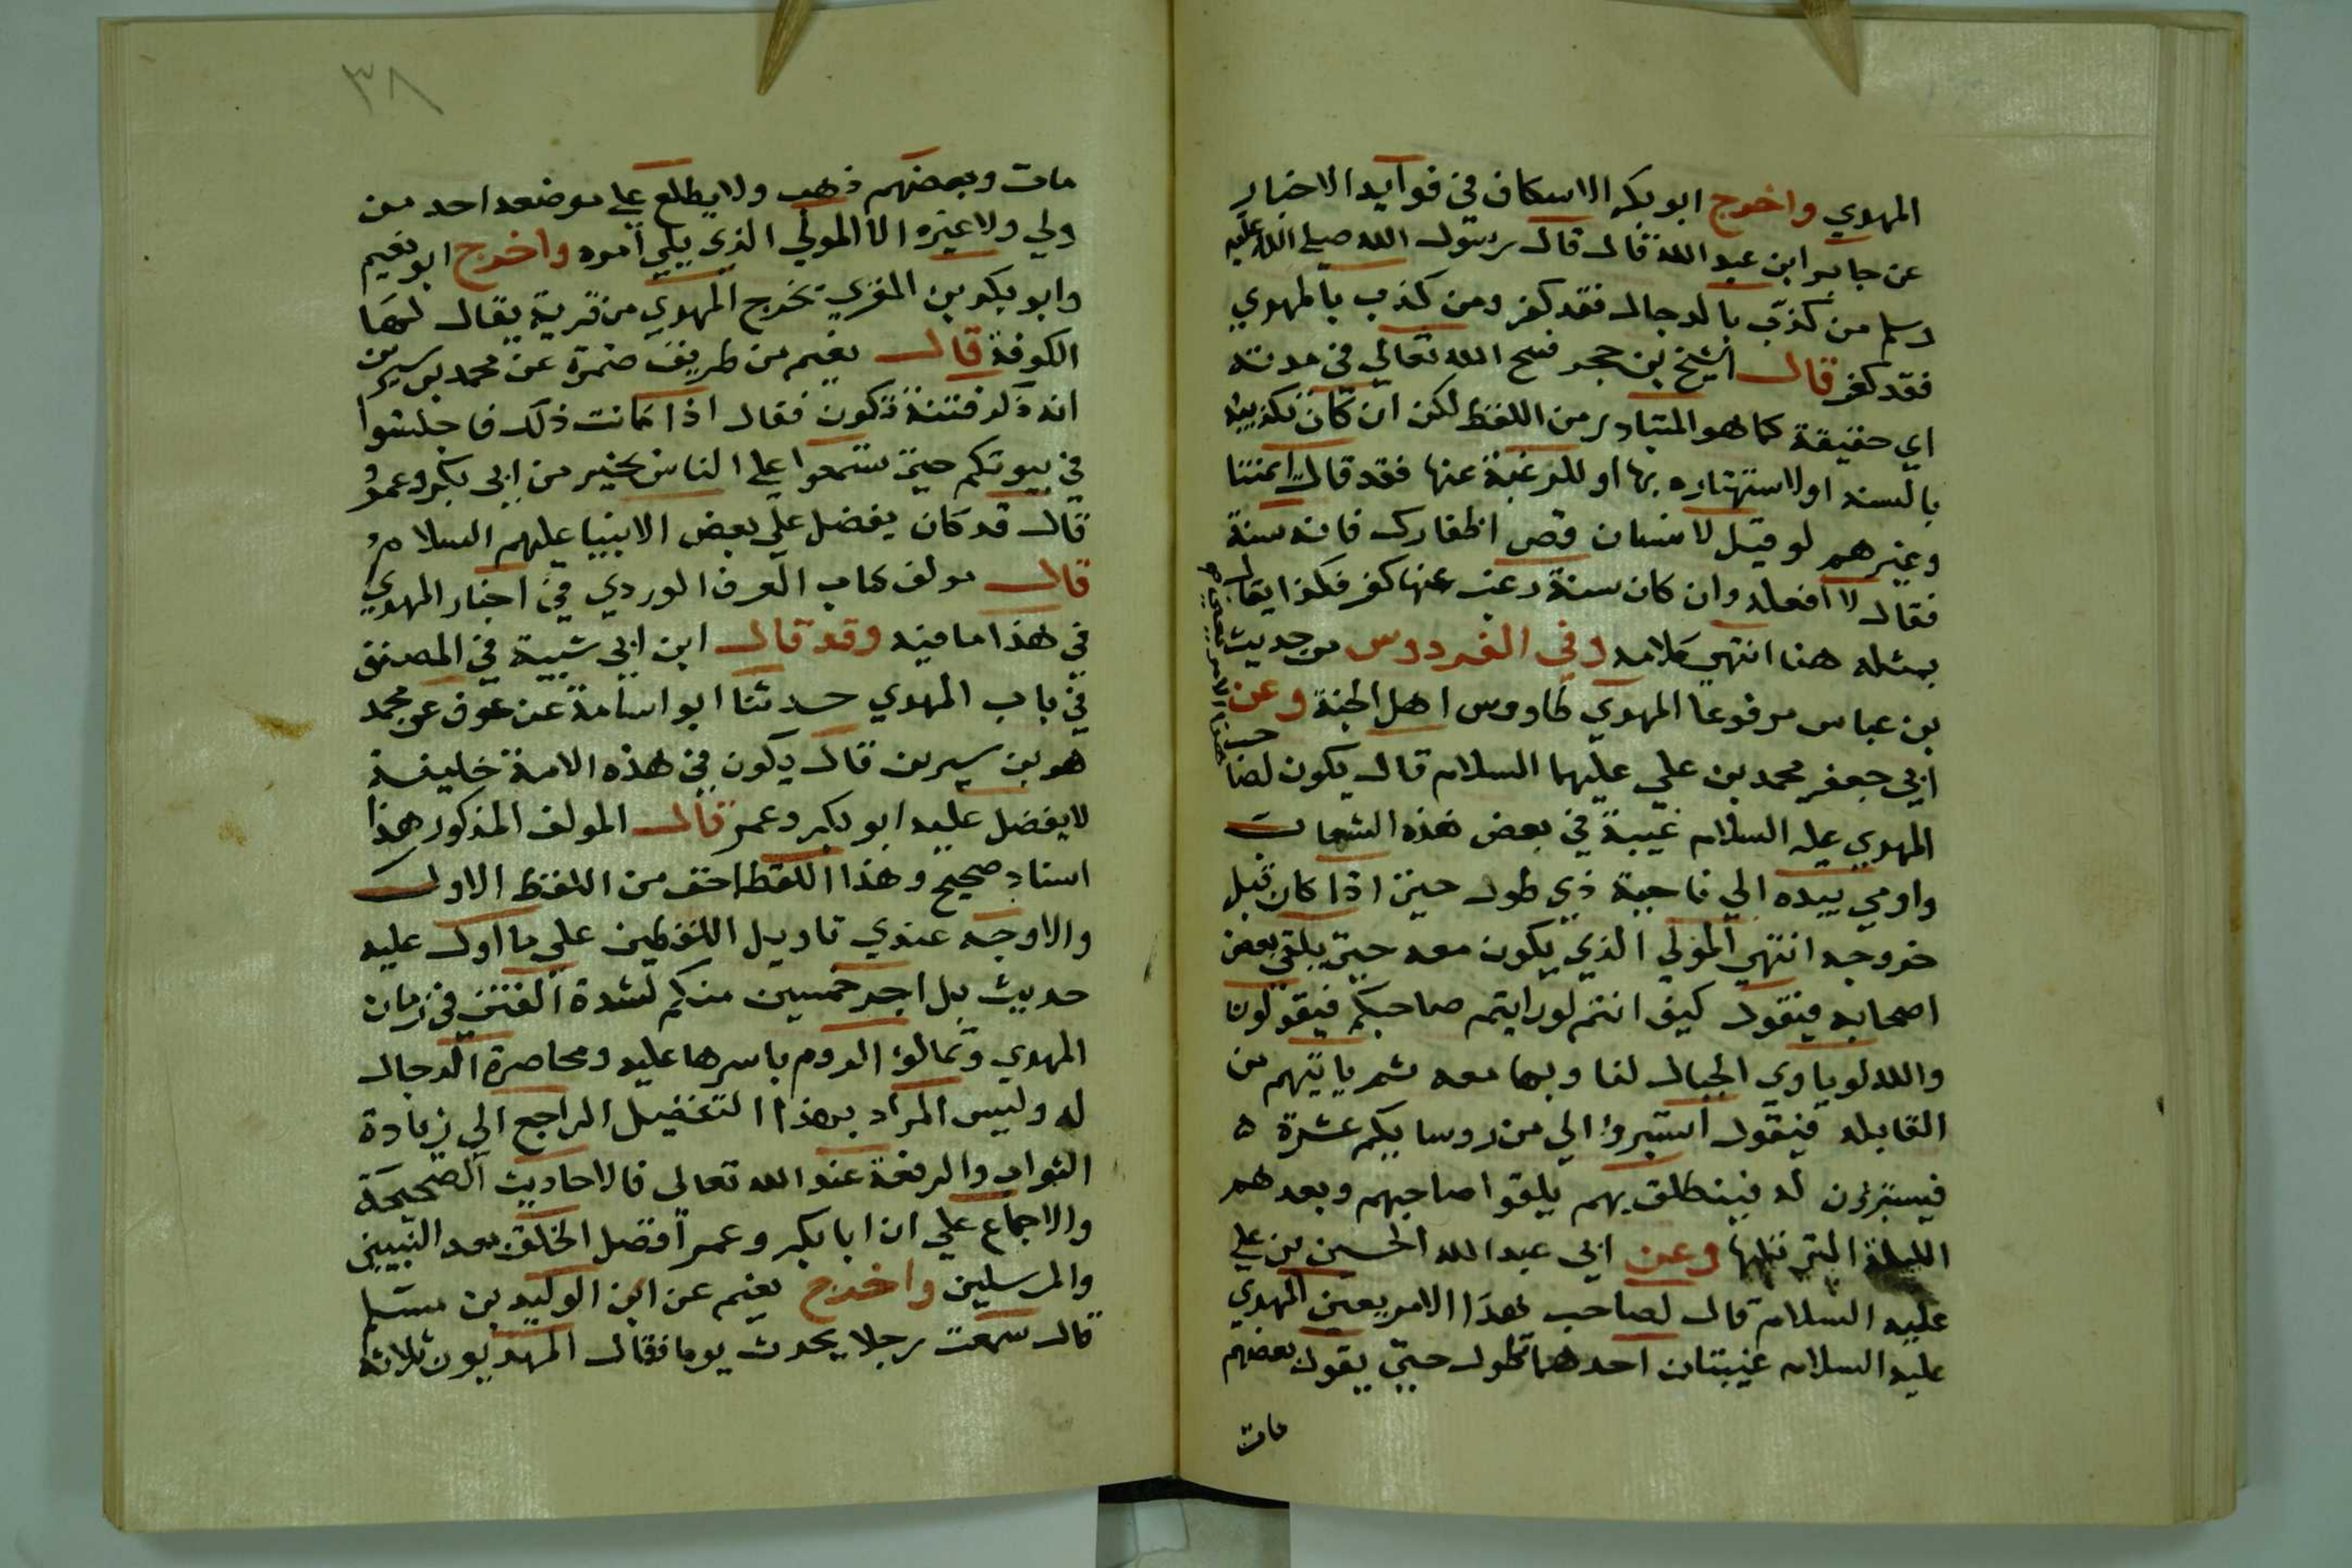 المهدي واخرج ابو بكر الاسكاف في فوايد الاخبار
عن جابر ابن عبد الله قال قال رسول الله صلى الله عليه
وسلم من كذب بالدجال فقد كفر ومن كذب بالمهدي
فقد كفر قال الشيخ بن حجر فسح الله تعالي في مدته
اي حقيقة كما هو المتبادر من اللفظ لكن ان كان تكذيبه
بالسنه او لاستهتاره بها او للرغبة عنها فقد قال ايمتنا
وغيرهم لو قيل لانسان قص اظفارك فانه سنة
فقال لا افعله وان كان سنة رغب عنها كفر فكذا يقال
بمثله هنا انتهي كلامه وفي الفردوس من حديث
بن عباس مرفوعا المهدي طاووس اهل الجنة وعن
ابي جعفر محمد بن علي عليهما السلام قال يكون لصاحب
هذا الامر يعني
المهدي عليه السلام غيبة في بعض هذه الشعاب
واومي بيده الي ناحية ذي طول حيث اذا كان قبل
خروجه انتهي المولي الذي يكون معه حتي يلقي بعض
اصحابه فيقول كيف انتم لو رايتم صاحبكم فيقولون
والله لو ياوي الجبال لنا وبها معه ثم ياتيهم من
القابله فيقول استبروا الي من روسايكم عشرة ه
فيستبرون له فينطلق بهم يلقوا صاحبهم وبعدهم
الليلة التي تليها وعن ابي عبد الله الحسين بن علي
عليه السلام قال لصاحب هذا الامر يعني المهدي
عليه السلام غيبتان احدهما تطول حتي يقول بعضهم
مات
٣٨
مات وبعضهم ذهب ولا يطلع علي موضعه احد من
ولي ولا غيره الا المولي الذي يلي امره واخرج ابو نعيم
وابو بكر بن المقري يخرج المهدي من قرية يقال لها
الكوفة قال نعيم من طريف ضمرة عن محمد بن سيرين
انه ذكر فتنة تكون فقال اذا كانت ذلك فاجلسوا
في بيوتكم حتي تسمعوا علي الناس بخير من ابي بكر وعمر
قال قد كان يفضل علي بعض الانبيا عليهم السلام
قال مولف كتاب العرف الوردي في اخبار المهدي
في هذا ما فيه وقد قال ابن ابي شيبة في المصنف
في باب المهدي حدثنا ابو اسامة عن عوف عن محمد
هو بن سيرين قال يكون في هذه الامة خليفة
لا يفضل عليه ابو بكر وعمر قال المولف المذكور هذا
اسناد صحيح وهذا اللفظ اخف من اللفظ الاول
والاوجه عندي تاويل اللفظين علي ما اول عليه
حديث بل اجر خمسين منكم لشدة الفتن في زمان
المهدي وتمالوا الروم باسرها عليه ومحاصرة الدجال
له وليس المراد بهذا التفضيل الراجع الي زيادة
الثواب والرفعة عند الله تعالي فالاحاديث الصحيحة
والاجماع علي ان ابا بكر وعمر افضل الخلق بعد النبيين
والمرسلين واخرج نعيم عن ابن الوليد بن مسلم
قال سمعت رجلا يحدث يوما فقال المهديون ثلاثة